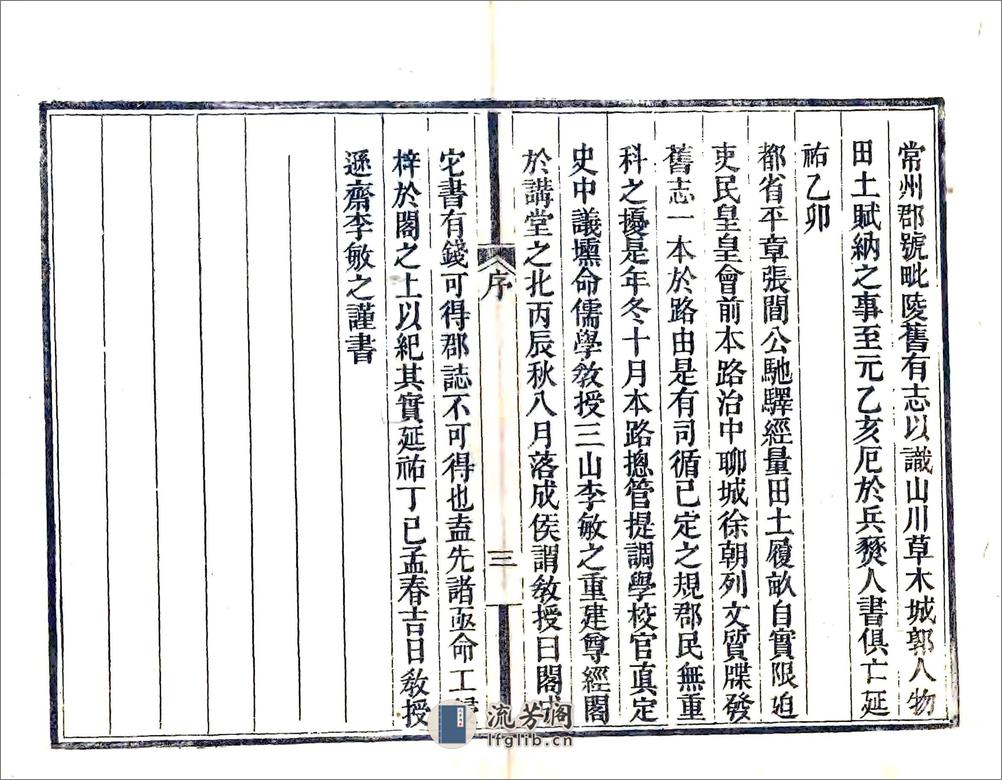 常州郡號毗陵舊有志以識山川草木城郭人物
田土賦納之事至元乙亥厄於兵燹人書俱亡延
祐乙卯
都省平章張閭公馳驛經量田土履畝自實限迫
吏民皇皇會前本路治中聊城徐朝列文質牒發
舊志一本於路由是有司循已定之規郡民無重
科之擾是年冬十月本路摠管提調學校官真定
史中議壎命儒學敎授三山李敏之重建尊經閣
於講堂之北丙辰秋八月落成侯謂敎授曰閣
序
三
它書有錢可得郡誌不可得也盍先諸亟命工
梓於閣之上以紀其實延祐丁巳孟春吉日敎授
遜齋李敏之謹書
流芳閣
lfglib.cn